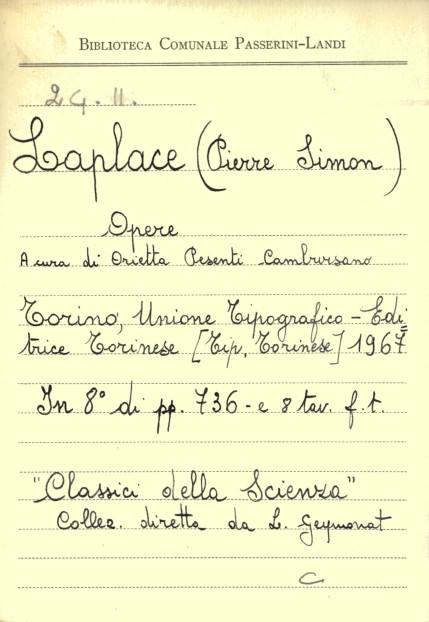 BIBLIOTECA COMUNALE PASSERINI-LANDI
2G. 11.
Laplace (Pierre Simon)
Opere
A cura di Orietta Pesenti Cambursano
Torino, Unione Tipografico - Edi=
trice Torinese [Tip. Torinese] 1967
In 8° di pp. 736 - e 8 tav. f. t.
"Classici della Scienza"
Collez. diretta da L. Geymonat
C